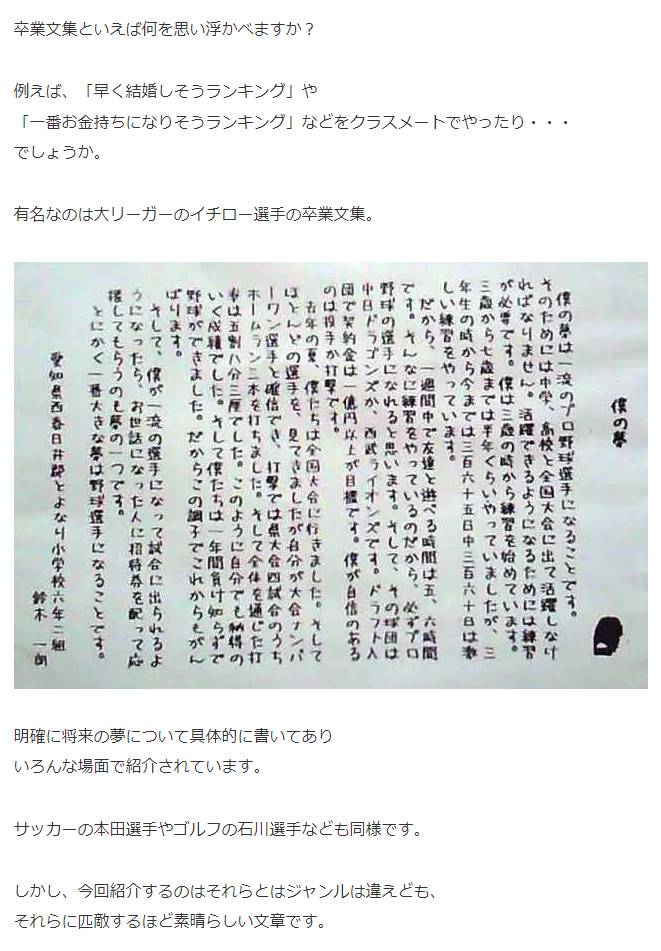 卒業文集といえば何を思い浮かべますか？
例えば、「早く結婚しそうランキング」や
「一番お金持ちになりそうランキング」などをクラスメートでやったり・・・
でしょうか。
有名なのは大リーガーのイチロー選手の卒業文集。
僕の夢
僕の夢は一流のプロ野球選手になることです。
そのためには中学、高校と全国大会に出て活躍しなけ
ればなりません。活躍できるようになるためには練習
が必要です。僕は三歳の時から練習を始めています。
三歳から七歳までは半年くらいやっていましたが、三
年生の時から今までは三百六十五日中三百六十日は激
しい練習をやっています。
だから、一週間中で友達と遊べる時間は五、六時間
です。そんなに練習をやっているのだから、必ずプロ
野球の選手になれると思います。そして、その球団は
中日ドラゴンズか、西武ライオンズです。ドラフト入
団で契約金は一億円以上が目標です。僕が自信のある
のは投手か打撃です。
去年の夏、僕たちは全国大会に行きました。そして
ほとんどの選手を、見てきましたが自分が大会ナンバ
ーワン選手と確信でき、打撃では県大会四試合のうち
ホームラン三本を打ちました。そして全体を通じた打
率は五割八分三厘でした。このように自分でも納得の
いく成績でした。そして僕たちは一年間負け知らずで
野球ができました。だからこの調子でこれからもがん
ばります。
そして、僕が一流の選手になって試合に出られるよ
うになったら、お世話になった人に招待券を配って応
援してもらうのも夢の一つです。
とにかく一番大きな夢は野球選手になることです。
愛知県西春日井郡とよなり小学校六年二組
鈴木 一朗
明確に将来の夢について具体的に書いてあり
いろんな場面で紹介されています。
サッカーの本田選手やゴルフの石川選手なども同様です。
しかし、今回紹介するのはそれらとはジャンルは違えども、
それらに匹敵するほど素晴らしい文章です。